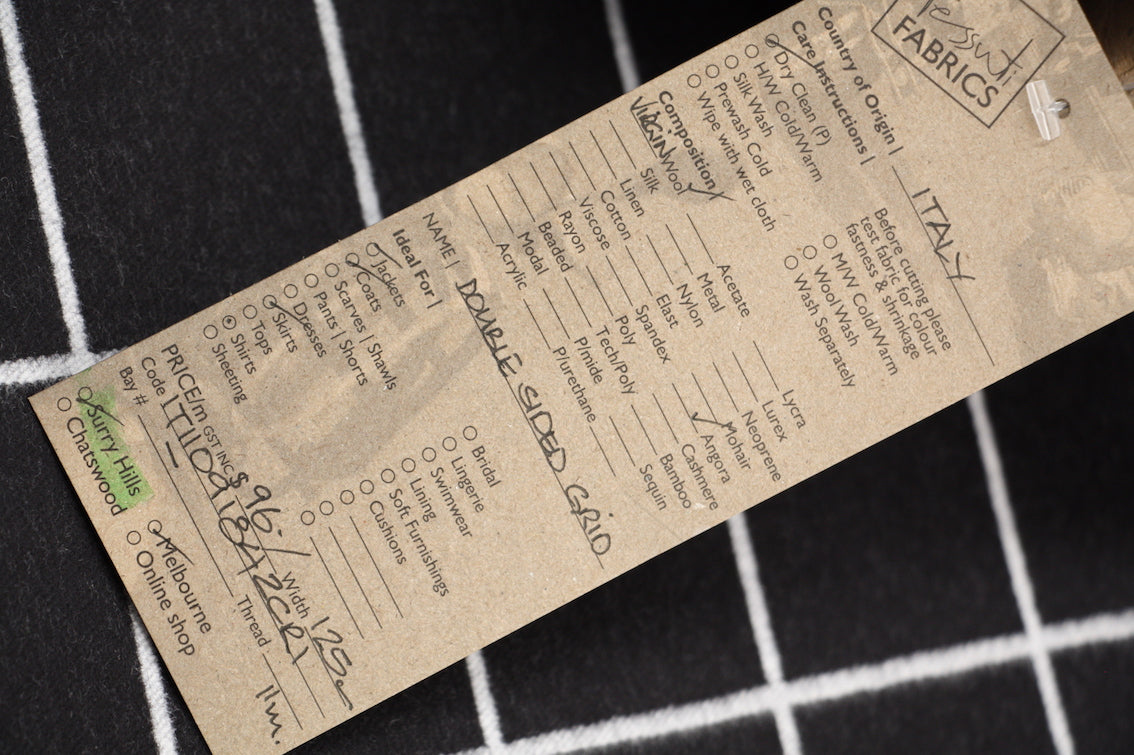 Tessuti
FABRICS
Country of Origin | ITALY
Care Instructions |
Dry Clean (P)
H/W Cold/Warm
Silk Wash
Prewash Cold
Wipe with wet cloth
Before cutting please
test fabric for colour
fastness & shrinkage
M/W Cold/Warm
Wool Wash
Wash Separately
Composition
VIRGIN Wool
Silk
Linen
Cotton
Viscose
Rayon
Beaded
Modal
Acrylic
Acetate
Metal
Nylon
Elast
Spandex
Poly
Tech/Poly
P/mide
P/urethane
Lycra
Lurex
Neoprene
Mohair
Angora
Cashmere
Bamboo
Sequin
NAME | DOUBLE SIDED GRID
Ideal For |
Jackets
Coats
Scarves | Shawls
Pants | Shorts
Dresses
Skirts
Tops
Shirts
Sheeting
Bridal
Lingerie
Swimwear
Lining
Soft Furnishings
Cushions
PRICE/m GST INC $96./ Width 125
Code
Bay # Thread 11m.
Surry Hills
Chatswood
Melbourne
Online shop